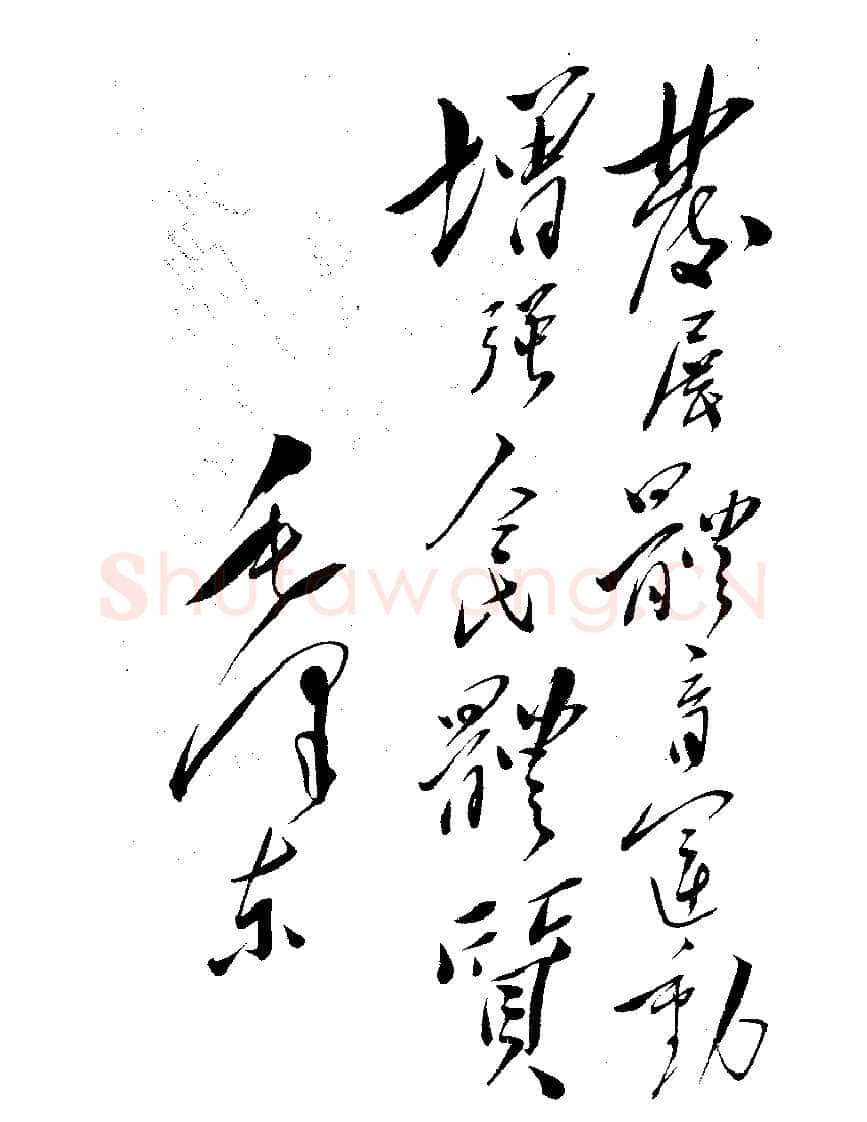 發展體育運動
增强人民體質
毛泽东
Shufawang.CN